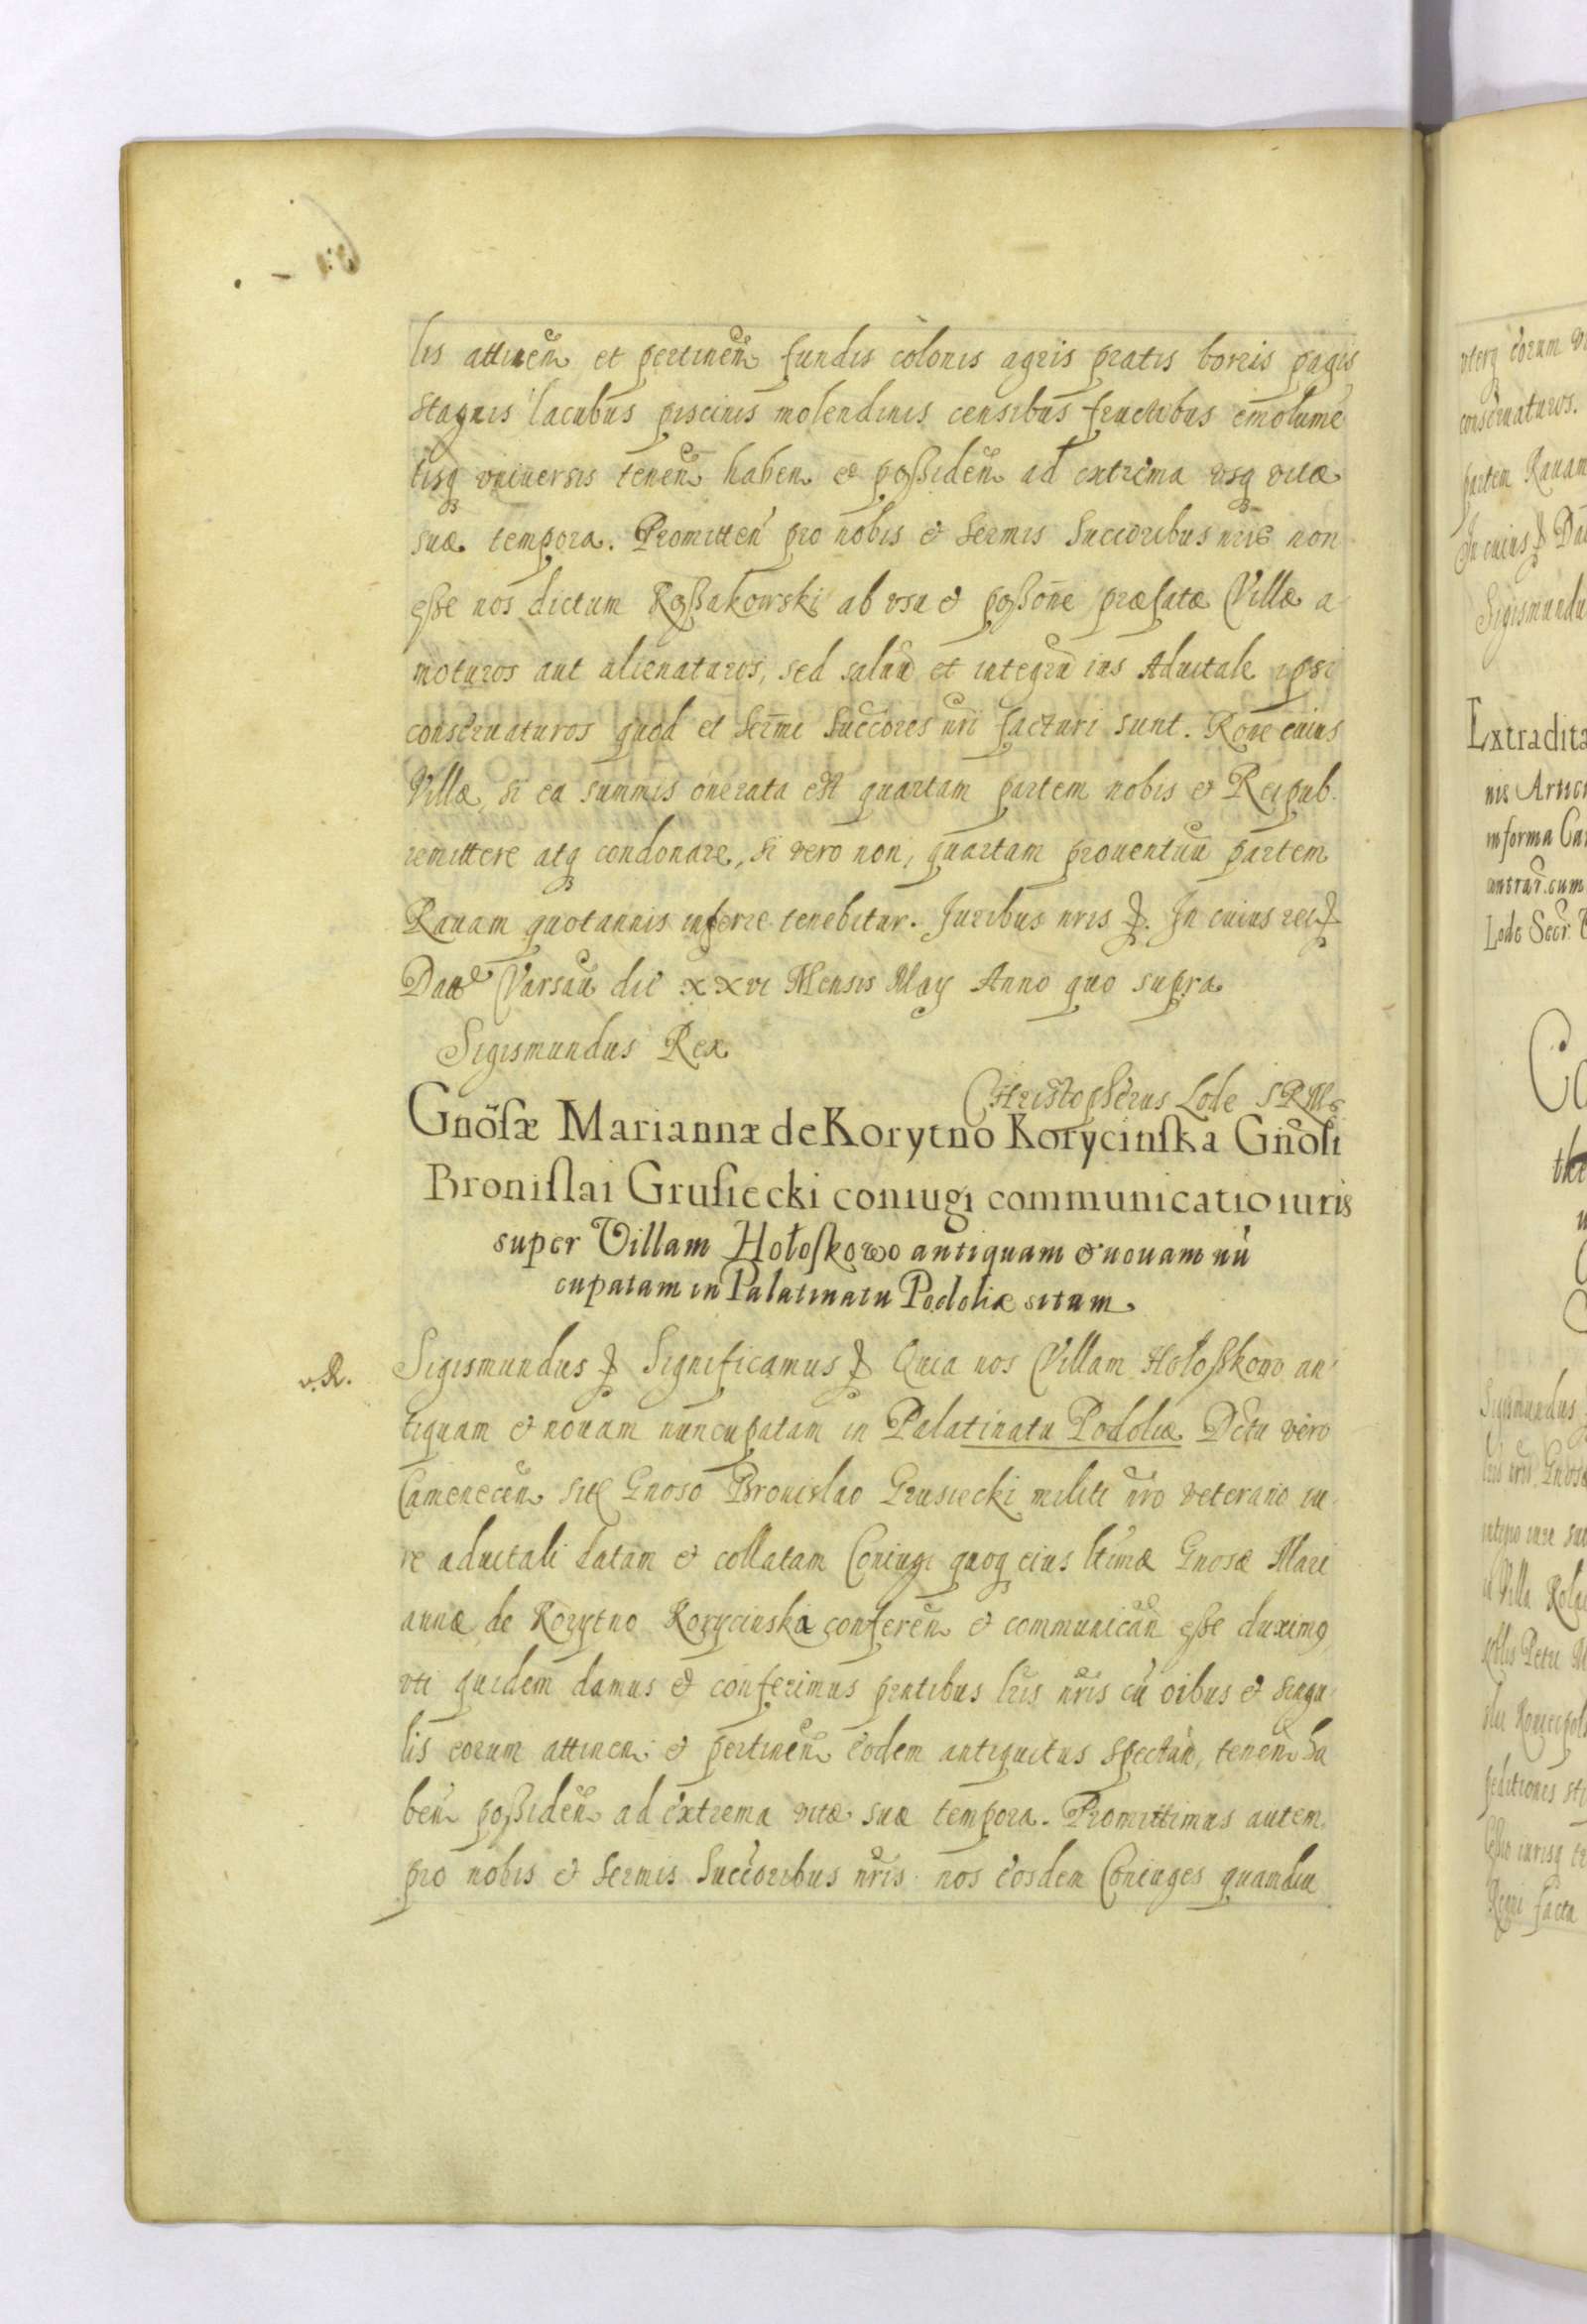 lis attinen et pertinen fundis colonis agris pratis borris pagis
Stagnis lacubus piscinis molendinis censibus fructibus emolumē
tisq vniuersis tenen haben et possiden ad extrema vsq vitæ
suæ tempora. Promitten pro nobis & Sermis Succoribus nris non
esse nos dictum Rossakowski ab vsu & possone præfatæ Villæ a
moturos aut alienaturos, sed saluū et integrū ius Aduitale ipsi
conseruaturos quod et Sermi Succores nri facturi sunt. Rone cuius
Villæ, si ea summis onerata est quartam partem nobis & Reipub.
remittere atq condonare, si vero non, quartam prouentuū partem
Rauam quotannis inferre tenebitur. Juribus nris &. In cuius rei &
Datt Varsau die XXVI Mensis May Anno quo supra
Sigismundus Rex
Christopherus Lode SRMs
Gnosæ Mariannæ de Korytno Korycinska Gnosi
Bronislai Grusiecki coniugi communicatio iuris
super Villam Hołoskowo antiquam & nouam nū
cupatam in Palatinatu Podoliæ sitam
v. R.
Sigismundus & Significamus & Quia nos Villam Hołosskowo an
tiquam & nouam nuncupatam in Palatinatu Podoliæ Dctu vero
Camenecen sit Gnoso Bronislao Grusiecki militi nro veterano iu
re aduitali datam & collatam Coniugi quoq eius ltimæ Gnosæ Mari
annæ de Korytno Korycinska conferen & communican esse duximq
vti quidem damus & conferimus pntibus lris nris cū oibus & singu
lis eorum attinen & pertinen eodem antiquitus spectan, tenen ha
ben possiden ad extrema vitæ suæ tempora. Promittimus autem
pro nobis & Sermis Succoribus nris nos eosdem Coniuges quamdiu